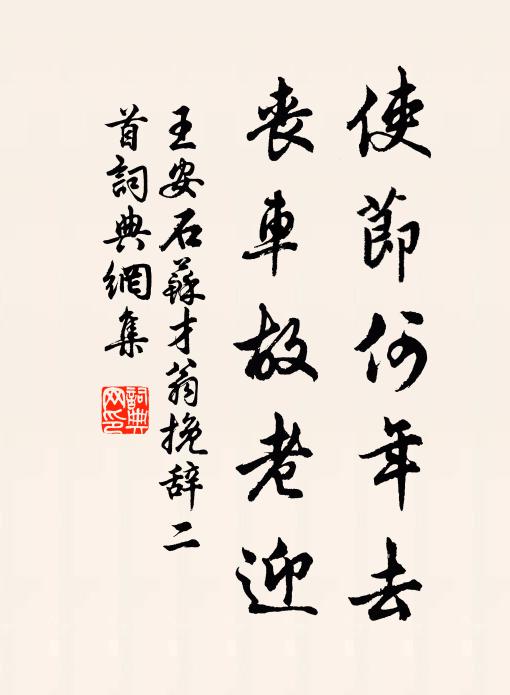 使節何年去
喪車故老迎
王安石蘇才翁挽辞二
首詞典網集
詞典
网印